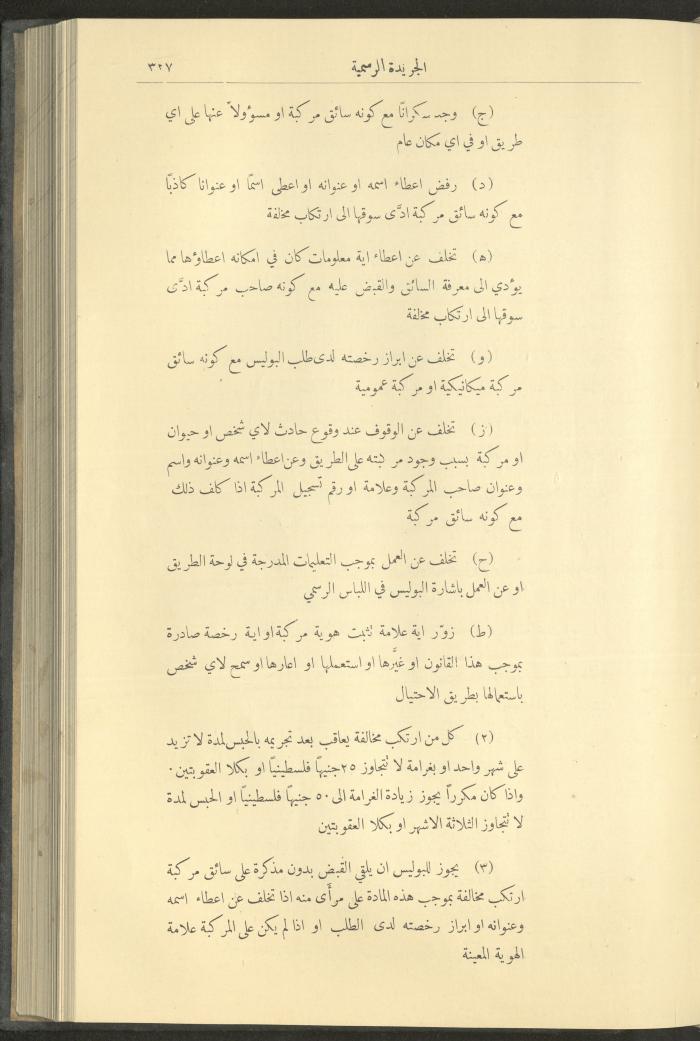 الجريدة الرسمية ٣٢٧
(ج) وجد سكرانًا مع كونه سائق مركبة او مسؤولاً عنها على اي
طريق او في اي مكان عام
(د) رفض اعطاء اسمه او عنوانه او اعطى اسمًا او عنوانا كاذبًا
مع كونه سائق مركبة ادَّى سوقها الى ارتكاب مخالفة
(ه) تخلف عن اعطاء اية معلومات كان في امكانه اعطاؤها مما
يؤدي الى معرفة السائق والقبض عليه مع كونه صاحب مركبة ادَّى
سوقها الى ارتكاب مخالفة
(و) تخلف عن ابراز رخصته لدى طلب البوليس مع كونه سائق
مركبة ميكانيكية او مركبة عمومية
(ز) تخلف عن الوقوف عند وقوع حادث لاي شخص او حيوان
او مركبة بسبب وجود مركبته على الطريق وعن اعطاء اسمه وعنوانه واسم
وعنوان صاحب المركبة وعلامة او رقم تسجيل المركبة اذا كلف ذلك
مع كونه سائق مركبة
(ح) تخلف عن العمل بموجب التعليمات المدرجة في لوحة الطريق
او عن العمل باشارة البوليس في اللباس الرسمي
(ط) زوّر اية علامة تثبت هوية مركبة او اية رخصة صادرة
بموجب هذا القانون او غيَّرها او استعملها او اعارها او سمح لاي شخص
باستعمالها بطريق الاحتيال
(٢) كل من ارتكب مخالفة يعاقب بعد تجريمه بالحبس لمدة لا تزيد
على شهر واحد او بغرامة لا تتجاوز ٢٥ جنيهًا فلسطينيًا او بكلا العقوبتين.
واذا كان مكرراً يجوز زيادة الغرامة الى ٥٠ جنيهًا فلسطينيًا او الحبس لمدة
لا تتجاوز الثلاثة الاشهر او بكلا العقوبتين
(٣) يجوز للبوليس ان يلقي القبض بدون مذكرة على سائق مركبة
ارتكب مخالفة بموجب هذه المادة على مرأى منه اذا تخلف عن اعطاء اسمه
وعنوانه او ابراز رخصته لدى الطلب او اذا لم يكن على المركبة علامة
الهوية المعينة